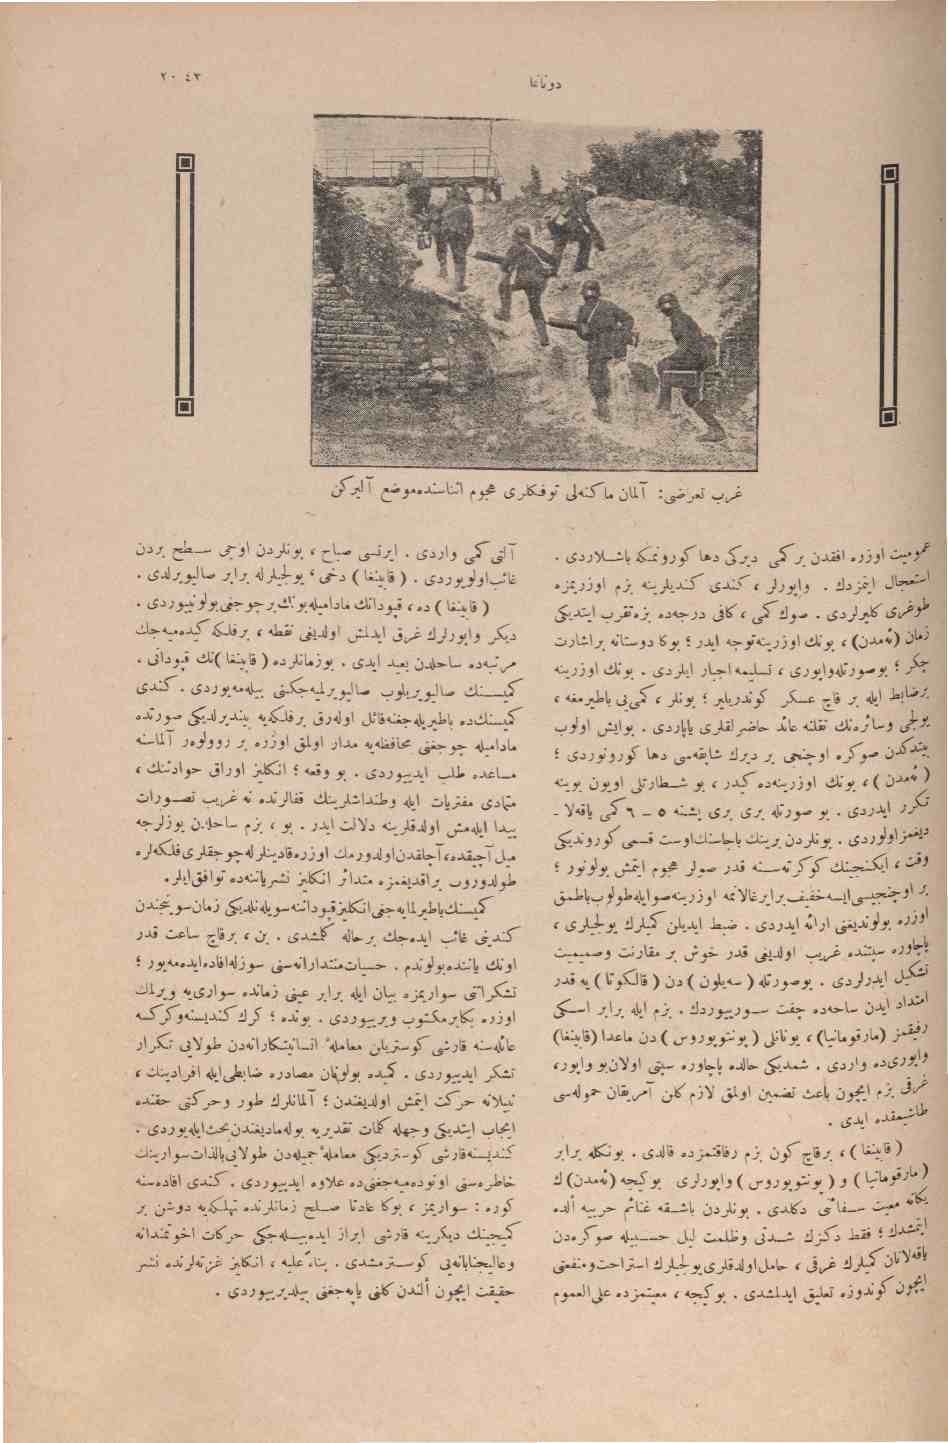 دوناما
٢٠٤٣
غرب تعرضی: آلمان ماكنه‌لی توفنكلری هجوم اثناسنده موضع آلیركن
عمومیت اوزره افقدن بر كمی دیركی دها كورونمكه باشلاردی .
استعجال ایتمزدك . واپورلر ، كندی كندیلرینه بزم اوزریمزه
طوغری كلیرلردی . صوك كمی ، كافی درجه‌ده بزه تقرب ایتدیكی
زمان (ئه‌مدن) ، بونك اوزرینه توجه ایدر ؛ بوكا دوستانه براشارت
چكر ؛ بوصورتله واپوری ، تسلیمه اجبار ایلردی . بونك اوزرینه
برضابط ایله بر قاچ عسكر كوندریلیر ؛ بونلر ، كمی‌یی باطیرمغه ،
یولجی وسائره‌نك نقلنه عائد حاضرلقلری یاپاردی . بوایش اولوب
بیتدكدن صوكره اوچنجی بر دیرك شاپقه‌سی دها كورونوردی ؛
( ئه‌مدن ) ، بونك اوزرینه‌ده كیدر ، بو شطارتلی اویون بوینه
تكرر ایدردی . بو صورتله بری بری پشنه ٥ - ٦ كمی یاقه‌لا -
دیغمز اولوردی . بونلردن برینك باجاسنك اوست قسمی كوروندیكی
وقت ، ایكنجینك كوكرته‌سنه قدر صولر هجوم ایتمش بولونور ؛
بر اوچنجیسی ایسه خفیف برابرغالانمه اوزرینه صوایله طولوب باطمق
اوزره بولوندیغنی ارائه ایدردی . ضبط ایدیلن كمیلرك یولجیلری ،
پاچاوره سپتنده غریب اولدیغی قدر خوش بر مقارنت وصمیمیت
تشكیل ایدرلردی . بوصورتله ( سه‌یلون ) دن ( قالكوتا ) یه قدر
امتداد ایدن ساحه‌ده چفت سوریبوردك . بزم ایله برابر اسكی
رفیقمز (مارقومانیا) ، یونانلی ( پونتوپوروس ) دن ماعدا (قابینغا)
واپوری‌ده واردی . شمدیكی حالده پاچاوره سپتی اولان بو واپور،
غرقی بزم ایچون باعث تضمین اولمق لازم كلن آمریقان حموله‌سی
طاشیمقده ایدی .
( قابینغا ) ، برقاچ كون بزم رفاقتمزده قالدی . بونكله برابر
( مارقومانیا ) و ( پونتوپوروس ) واپورلری بوكیجه (ئه‌مدن) ك
یكانه معیت سفائنی دكلدی . بونلردن باشقه غنائم حربیه ألده
ایتمشدك ؛ فقط دكزك شدتی وظلمت لیل حسبیله صوكره‌دن
یاقه‌لانان كمیلرك غرقی ، حامل اولدقلری یولجیلرك استراحت ومنفعتی
ایچون كوندوزه تعلیق ایدلمشدی . بوكیجه ، معیتمزده علی العموم
آلتی كمی واردی . ایرتسی صباح ، بونلردن اوچی سطح بردن
غائب اولویوردی . ( قابینغا ) دخی ، یولجیلرله برابر صالیویرلدی .
( قابینغا ) ده ، قپودانك مادامیله بونك برچوجغی بولونییوردی .
دیكر واپورلرك غرق ایدلمش اولدیغی نقطه ، برفلكه كیده‌میه‌جك
مرتبه‌ده ساحلدن بعید ایدی . بوزمانلرده ( قابینغا )نك قپودانی ،
كمیسنك صالیویریلوب صالیویرلمیه‌جكنی بیله‌مه‌یوردی . كندی
كمیسنك‌ده باطیریله‌جغنه قائل اوله‌رق برفلكه‌یه بیندیرلدیكی صورتده
مادامیله چوجغنی محافظه‌یه مدار اولمق اوزره بر روولوه‌ر آلماسنه
مساعده طلب ایدییوردی . بو وقعه ؛ انكلیز اوراق حوادثنك ،
متمادی مفتریات ایله وطنداشلرینك قفالرنده نه غریب تصورات
پیدا ایله‌مش اولدقلرینه دلالت ایدر . بو ، بزم ساحلدن یوزلرجه
میل آچیقده، آجلقدن اولدورمك اوزره قادینلرله چوجقلری فلكه‌لره
طولدوروب براقدیغمزه متدائر انكلیز نشریاتنه‌ده توافق ایلر.
كمیسنك باطیرلمایه‌جغی انكلیز قپوداننه سویله‌نلدیكی زمان سوینجندن
كندینی غائب ایده‌جك برحاله كلمشدی . بن ، برقاچ ساعت قدر
اونك یاننده بولوندم . حسیات منتدارانه‌سنی سوزله افاده ایده‌مه‌یور ؛
تشكراتنی سواریمزه بیان ایله برابر عینی زمانده سواری‌یه ویرلمك
اوزره بكا برمكتوب ویرییوردی . بونده ؛ كرك كندیسنه وكركسه
عائله‌سنه قارشی كوستریلن معامله‌ٔ انسانیتكارانه‌دن طولایی تكرار
تشكر ایدییوردی . كمیده بولونان مصادره ضابطی ایله افرادینك ،
نجیبانه حركت ایتمش اولدیغندن ؛ آلمانلرك طور وحركتی حقنده
ایجاب ایتدیكی وجهله كلمات تقدیریه بوله‌مادیغندن بحث ایله‌یوردی .
كندیسنه قارشی كوستردیكی معامله‌ٔ جمیله‌دن طولایی بالذات سوارینك
خاطره‌سنی اونوده‌میه‌جغنی‌ده علاوه ایدییوردی . كندی افاده‌سنه
كوره : سواریمز ، بوكا عادتا صلح زمانلرنده تهلكه‌یه دوشن بر
كمیجینك دیكرینه قارشی ابراز ایده‌بیله‌جكی حركات اخوتمندانه
وعالیجنابانه‌یی كوسترمشدی . بناءً علیه ، انكلیز غزته‌لرنده نشر
حقیقت ایچون ألندن كلنی یاپه‌جغنی بیلدیرییوردی .